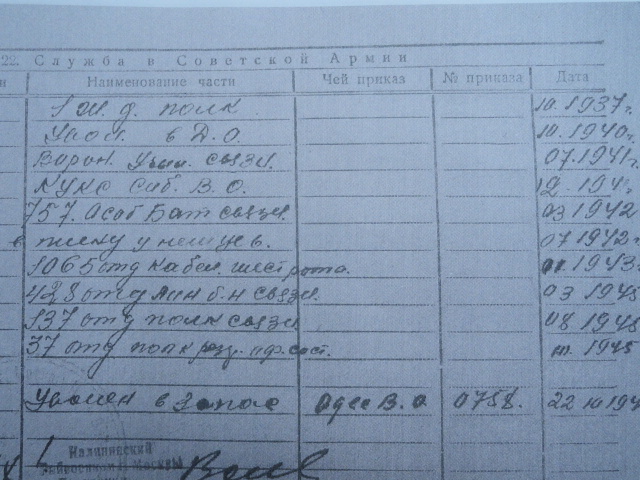 22. Служба в Советской Армии
Наименование части Чей приказ № приказа Дата
1 ж. д. полк 10. 1937 г.
в Д. О. 10. 1940 г.
Ворон. связи. 07. 1941 г.
КУКС Сиб. В. О. 12. 194
757. Особ Бат связи. 03 1942
в плену у немцев. 07 1942 г.
1065 отд кабел. шест рота. 1943
423 отд лин б-н связи. 03 1945
137 отд полк связи 08 1945
37 отд полк рез. оф. сост. 1945
Уволен в запас Одес В. О 0758. 22 10 194
Калининский
Москвы